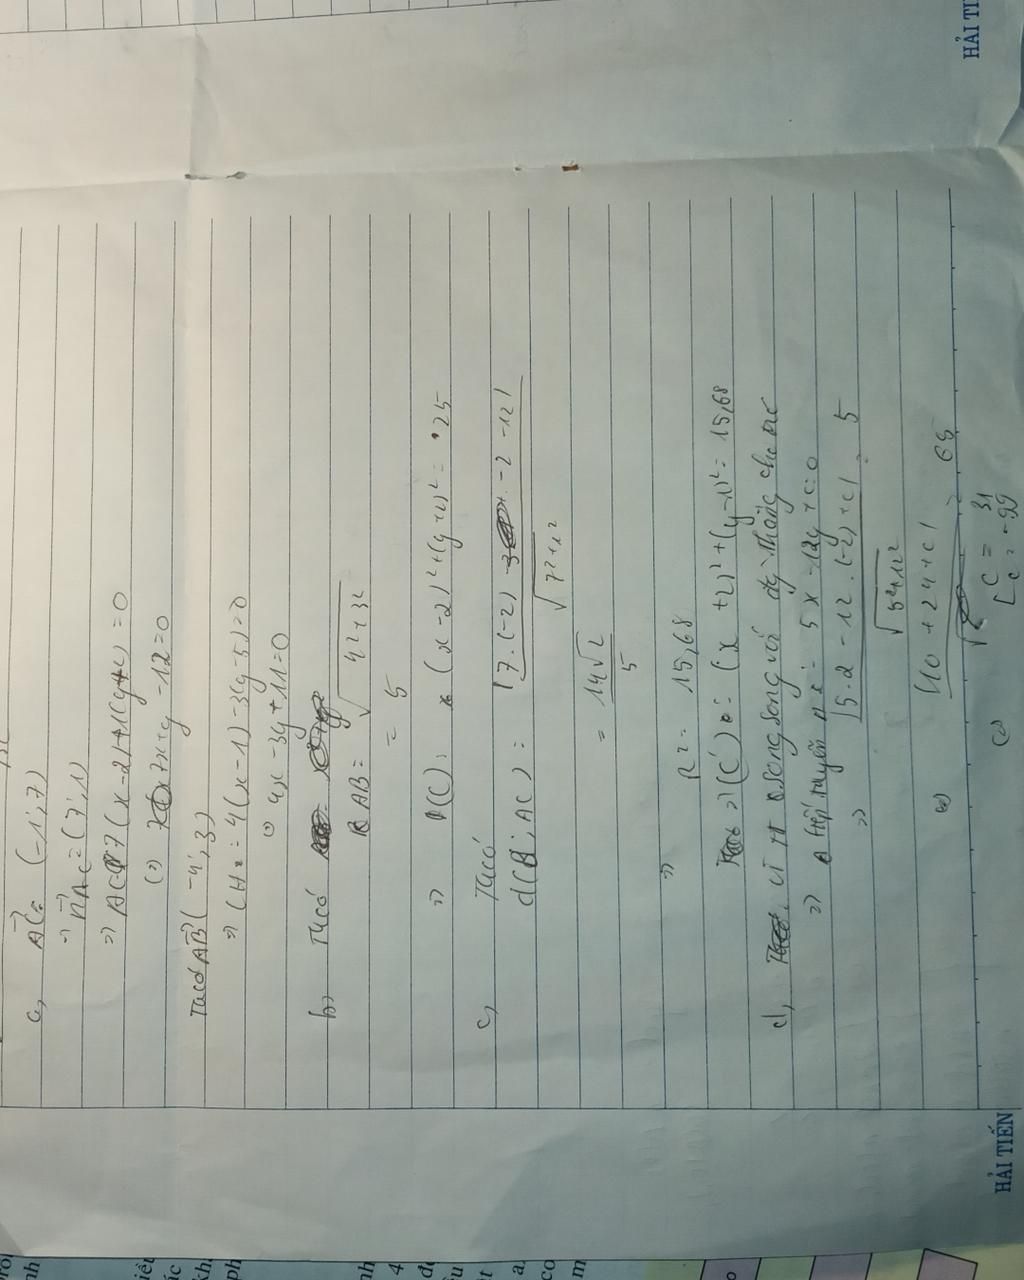 a, AC = (-1; 7)
=> nAC = (7; 1)
=> AC: 7(x-2)+1(y+2) = 0
(=) 7x+y-12=0
Ta có AB(-4; 3)
=> CH: 4(x-1)-3(y-5)=0
(=) 4x-3y+11=0
b, Ta có
R AB = √4²+3²
= 5
=> (C): (x-2)²+(y+2)² = 25
c, Ta có
d(B; AC) = |7.(-2) -2 -12| / √7²+1²
= 14√2 / 5
=> R² = 15,68
=> (C'): (x+2)²+(y-1)² = 15,68
d, Vì tt song song với đg thẳng cho trc
=> tiếp tuyến : 5x-12y+c=0
=> |5.2-12.(-2)+c| / √5²+12² = 5
(=) |10+24+c| = 65
(=) [c = 31
c = -99
HẢI TIẾN
HẢI TI